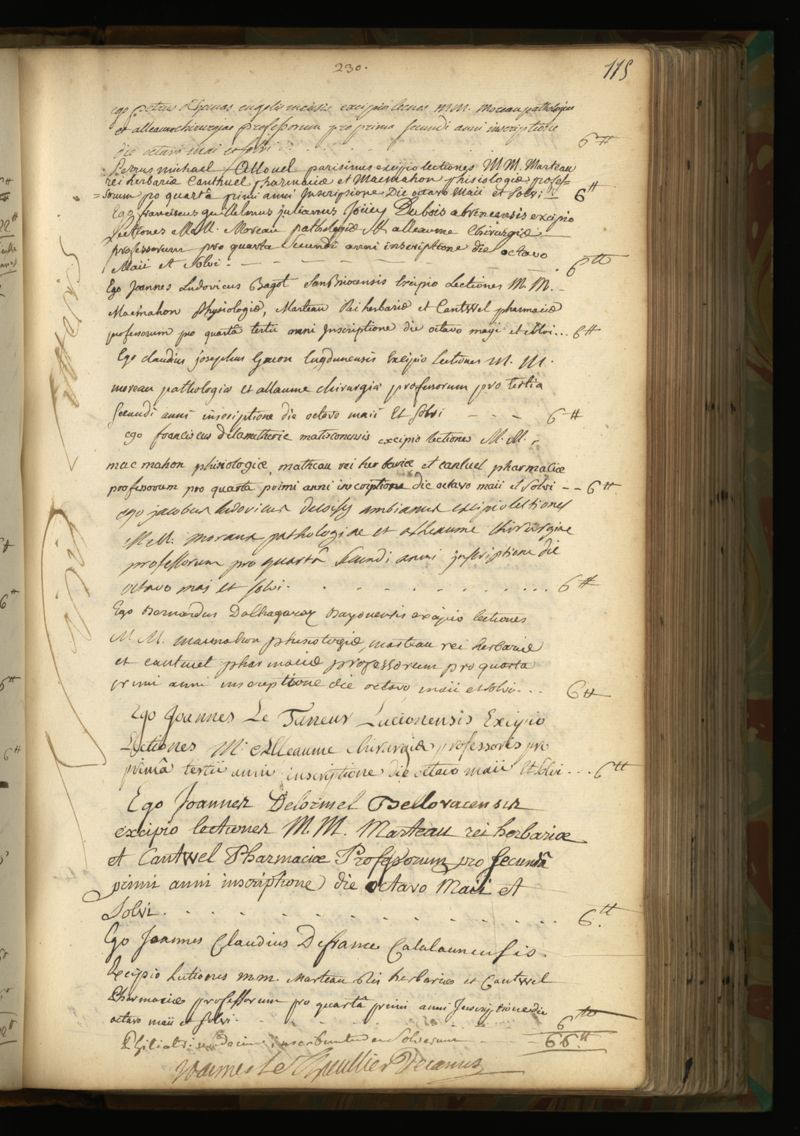 230.
115
ego petrus excipio lectiones mm. moreau pathologiae
et alleaume chirurgiae professorum pro prima secundi anni inscriptione
die octavo maii et solvi . . . 6 ₶
Petrus michael Allouel parisinus excipio lectiones MM. Marteau
rei herbariæ Canthuel pharmaciæ et Macmahon phisiologiæ profes-
=sorum pro quartâ primi anni Inscripsione Die octavo Maii et Solvi 6 ₶
Ego franciscus guillelmus julianus Dubois abrincensis excipio
lectiones M.M. Moreau pathologiæ et alleaume Chirurgiæ
professorum pro quarta secundi anni inscriptione die octavo
Maii et Solvi - - - - - - - 6 ₶
Ego Joannes Ludovicus Bagot Sanbriocensis Excipio Lectiones M. M. -
Macmahon Physiologiæ, Marteau Rei herbariæ et CantWel pharmaciæ
professorum pro quartâ tertii anni Jnscriptione die octavo maji et solvi... 6 ₶
Ego claudius josephus lugdunensis Excipio Lectiones M. M.
moreau pathologiæ et allaume chirurgiæ professorum pro tertia
secundi anni inscriptione die octavo maii Et Solvi - - - 6 ₶
ego franciscus Delametherie matisconensis excipio lectiones M. M.,
mac mahon phisiologiæ, matheau rei herbariæ et cantuel pharmaciæ
professorum pro quartâ primi anni inscriptione die octavo maii et Solvi - - 6 ₶
ego jacobus ludovicus ambianus excipio lectiones
MM. moraux pathologiae et alleaume chirurgiae
professorum pro quartâ secundi anni jnscriptione die
octavo maj et solvi. . . . . . . . . . 6 ₶
Ego Bernardus Dalhagaray Bayonensis excipio lectiones
M. M. macmahon phisiologiæ, marteau rei herbariæ
et cantuel pharmaciæ professorum pro quarta
primi anni inscriptione die octavo maii et solvi... 6 ₶
Ego Joannes Le Tanneur Lucionensis Excipio
Lectiones M. Alleaume chirurgiæ professoris pro
primâ tertii anni inscriptione die octavo maii Et solvi ... 6 ₶
Ego Joannes Delormel Bellovacensis
excipio lectiones M. M. Marteau rei herbariæ
et Cantwel Pharmaciæ Professorum pro secundâ
primi anni inscriptione die octavo Maii et
Solvi. . . . . . . . . . . 6. ₶
Ego Joannes Claudius Defrance Catalaunensis.
Excipio Lectiones m.m. Marteau Rei herbariæ et Cantwel
Pharmaciæ professorum pro quartâ primi anni Inscriptione die
octavo maii et solvi. . . . . . . 6 ₶
Philiatri undecim inscribuntur Solverunt 66. ₶
Decanus